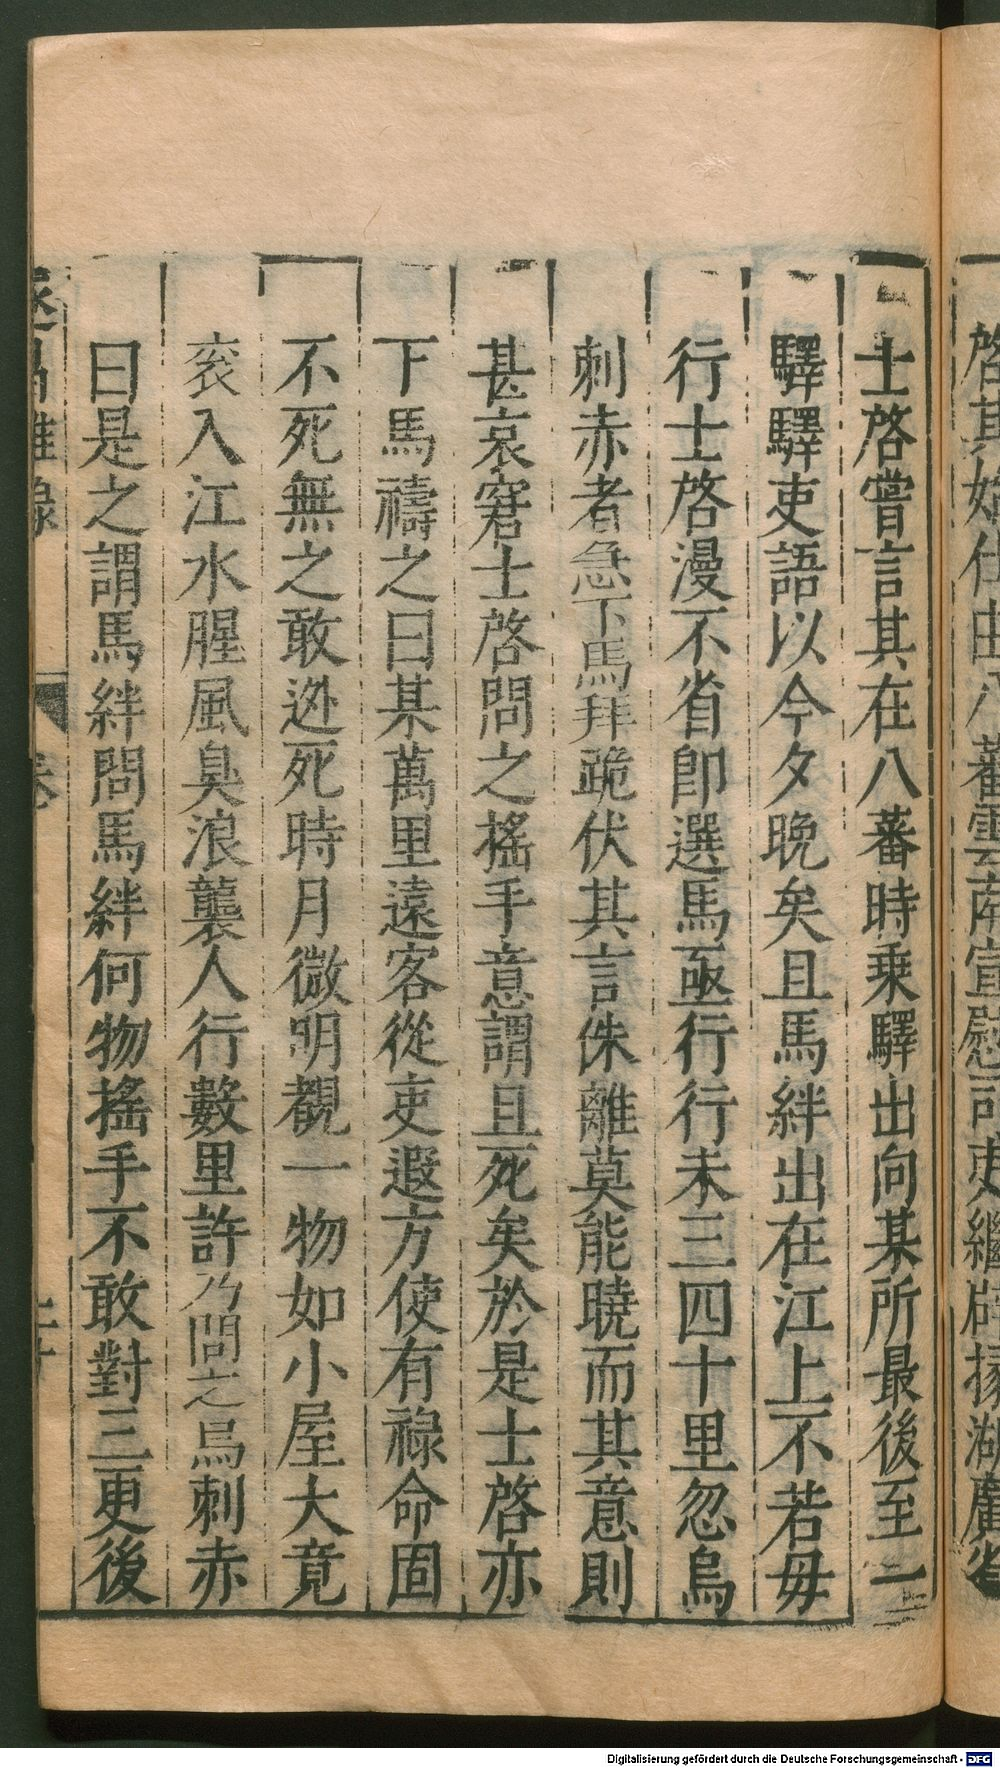 啓其始仕由八蕃雲南宣慰司吏繼辟掾湖廣省
士啓嘗言其在八蕃時乗驛出向某所最後至一
驛驛吏語以今夕晩矣且馬絆出在江上不若毋
行士啓漫不省卽選馬亟行行未三四十里忽烏
刺赤者急下馬拜跪伏其言侏離莫能曉而其意則
甚哀窘士啓問之搖手意謂且死矣於是士啓亦
下馬禱之曰某萬里遠客從吏遐方使有祿命固
不死無之敢迯死時月微明覩一物如小屋大竟
衮入江水腥風臭浪襲人行數里許乃問之烏刺赤
曰是之謂馬絆問馬絆何物搖手不敢對三更後
遂昌雜錄 卷 二十
Digitalisierung gefördert durch die Deutsche Forschungsgemeinschaft - DFG